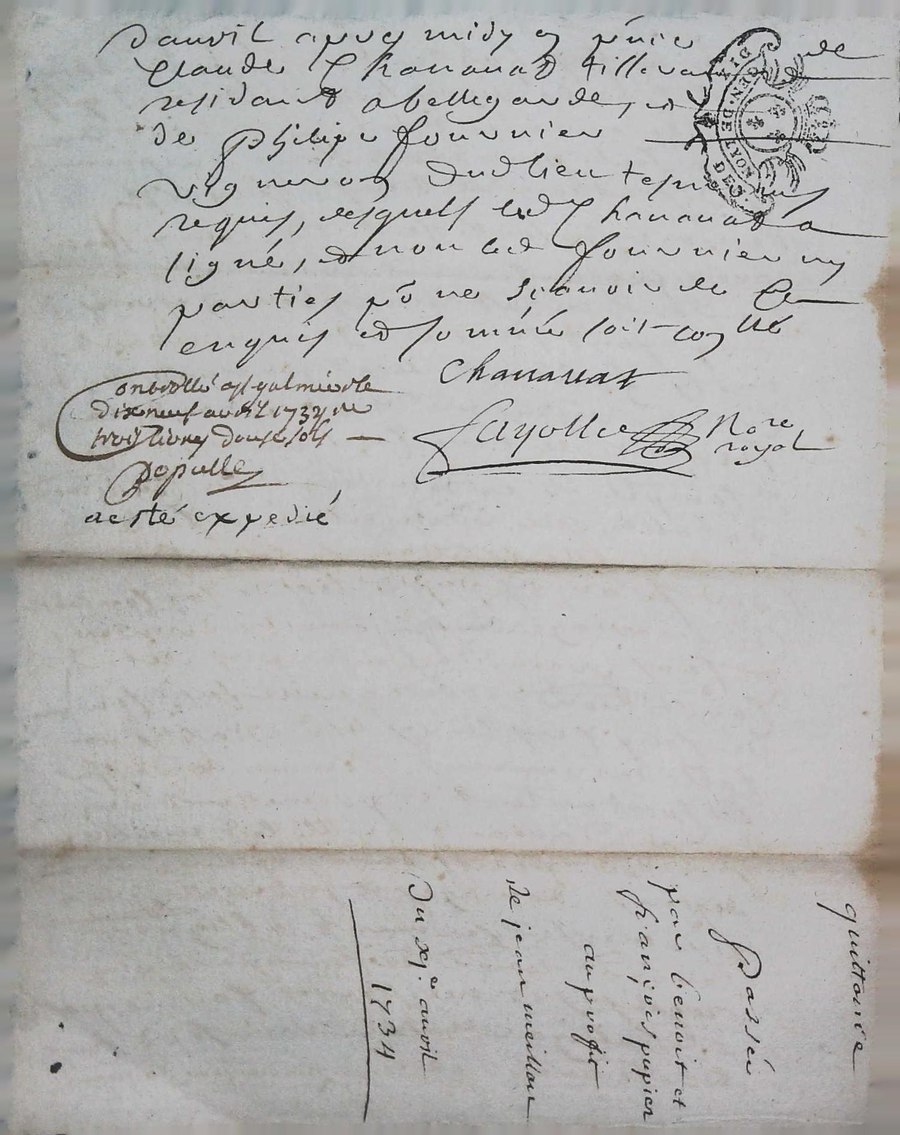 d'avril apres midy en p'nce de
Claude Chanavat tisserand
residant a bellegarde, et
de Philipe fournier
vigneron dud lieu tesmoins
requis, desquels led Chanavat a
signé, et non led fournier ny
parties p'o ne sçavoir de ce
enquis et sommés soit con'llé
Chanavat
Fayolle Nore
royal
controllé a st galmier le
dix neuf avril 1734 re
trois livres douse sols
populle
a esté expedié
GEN. DE LYON
quittance
Passée
par benoit et
françois papier
au profit
de jean meillon
Du xje avril
1734